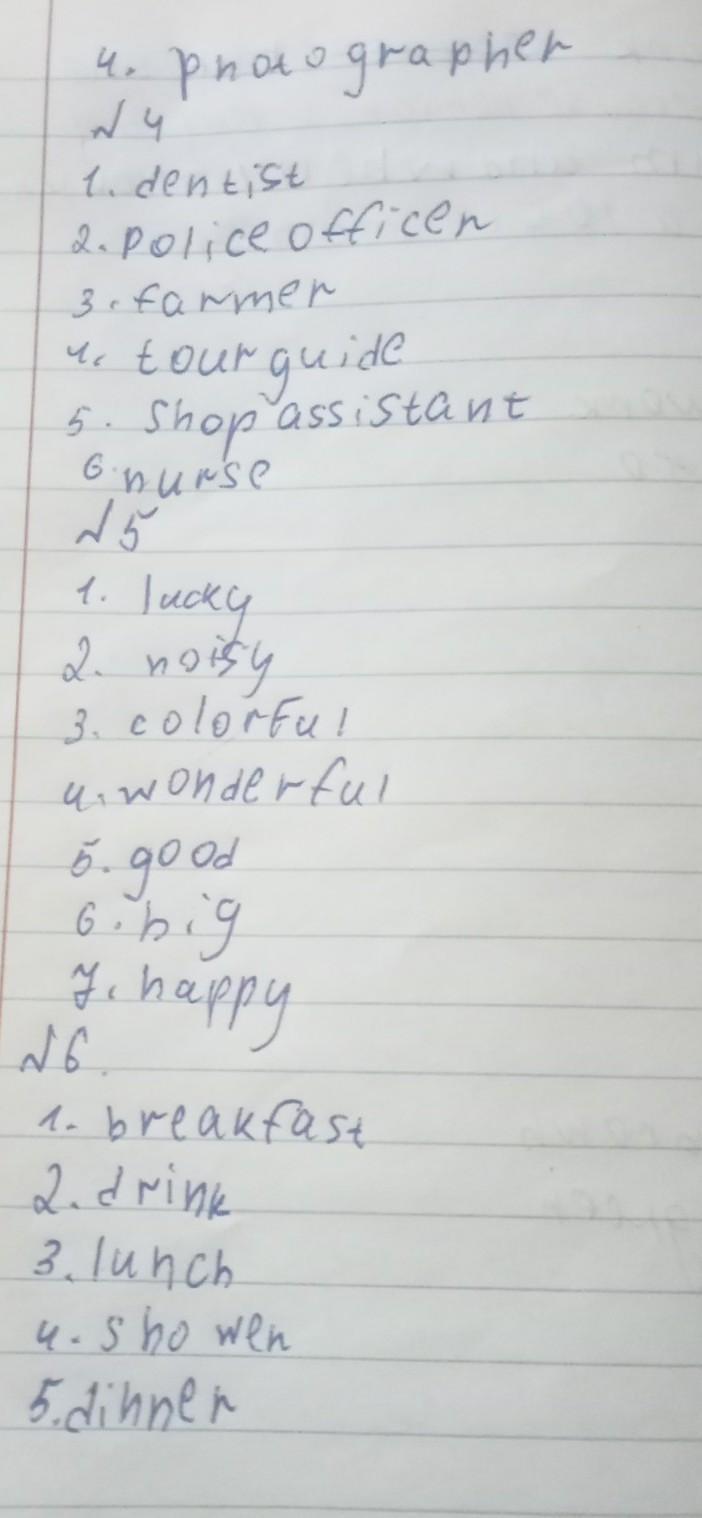 4. photographer
№ 4
1. dentist
2. police officer
3. farmer
4. tour guide
5. Shop assistant
6. nurse
№ 5
1. lucky
2. noisy
3. colorful
4. wonderful
5. good
6. big
7. happy
№ 6.
1. breakfast
2. drink
3. lunch
4. shower
5. dinner